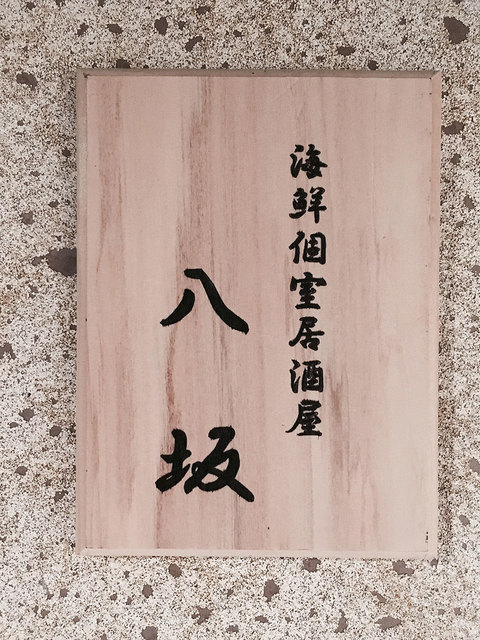 海鮮個室居酒屋
八坂